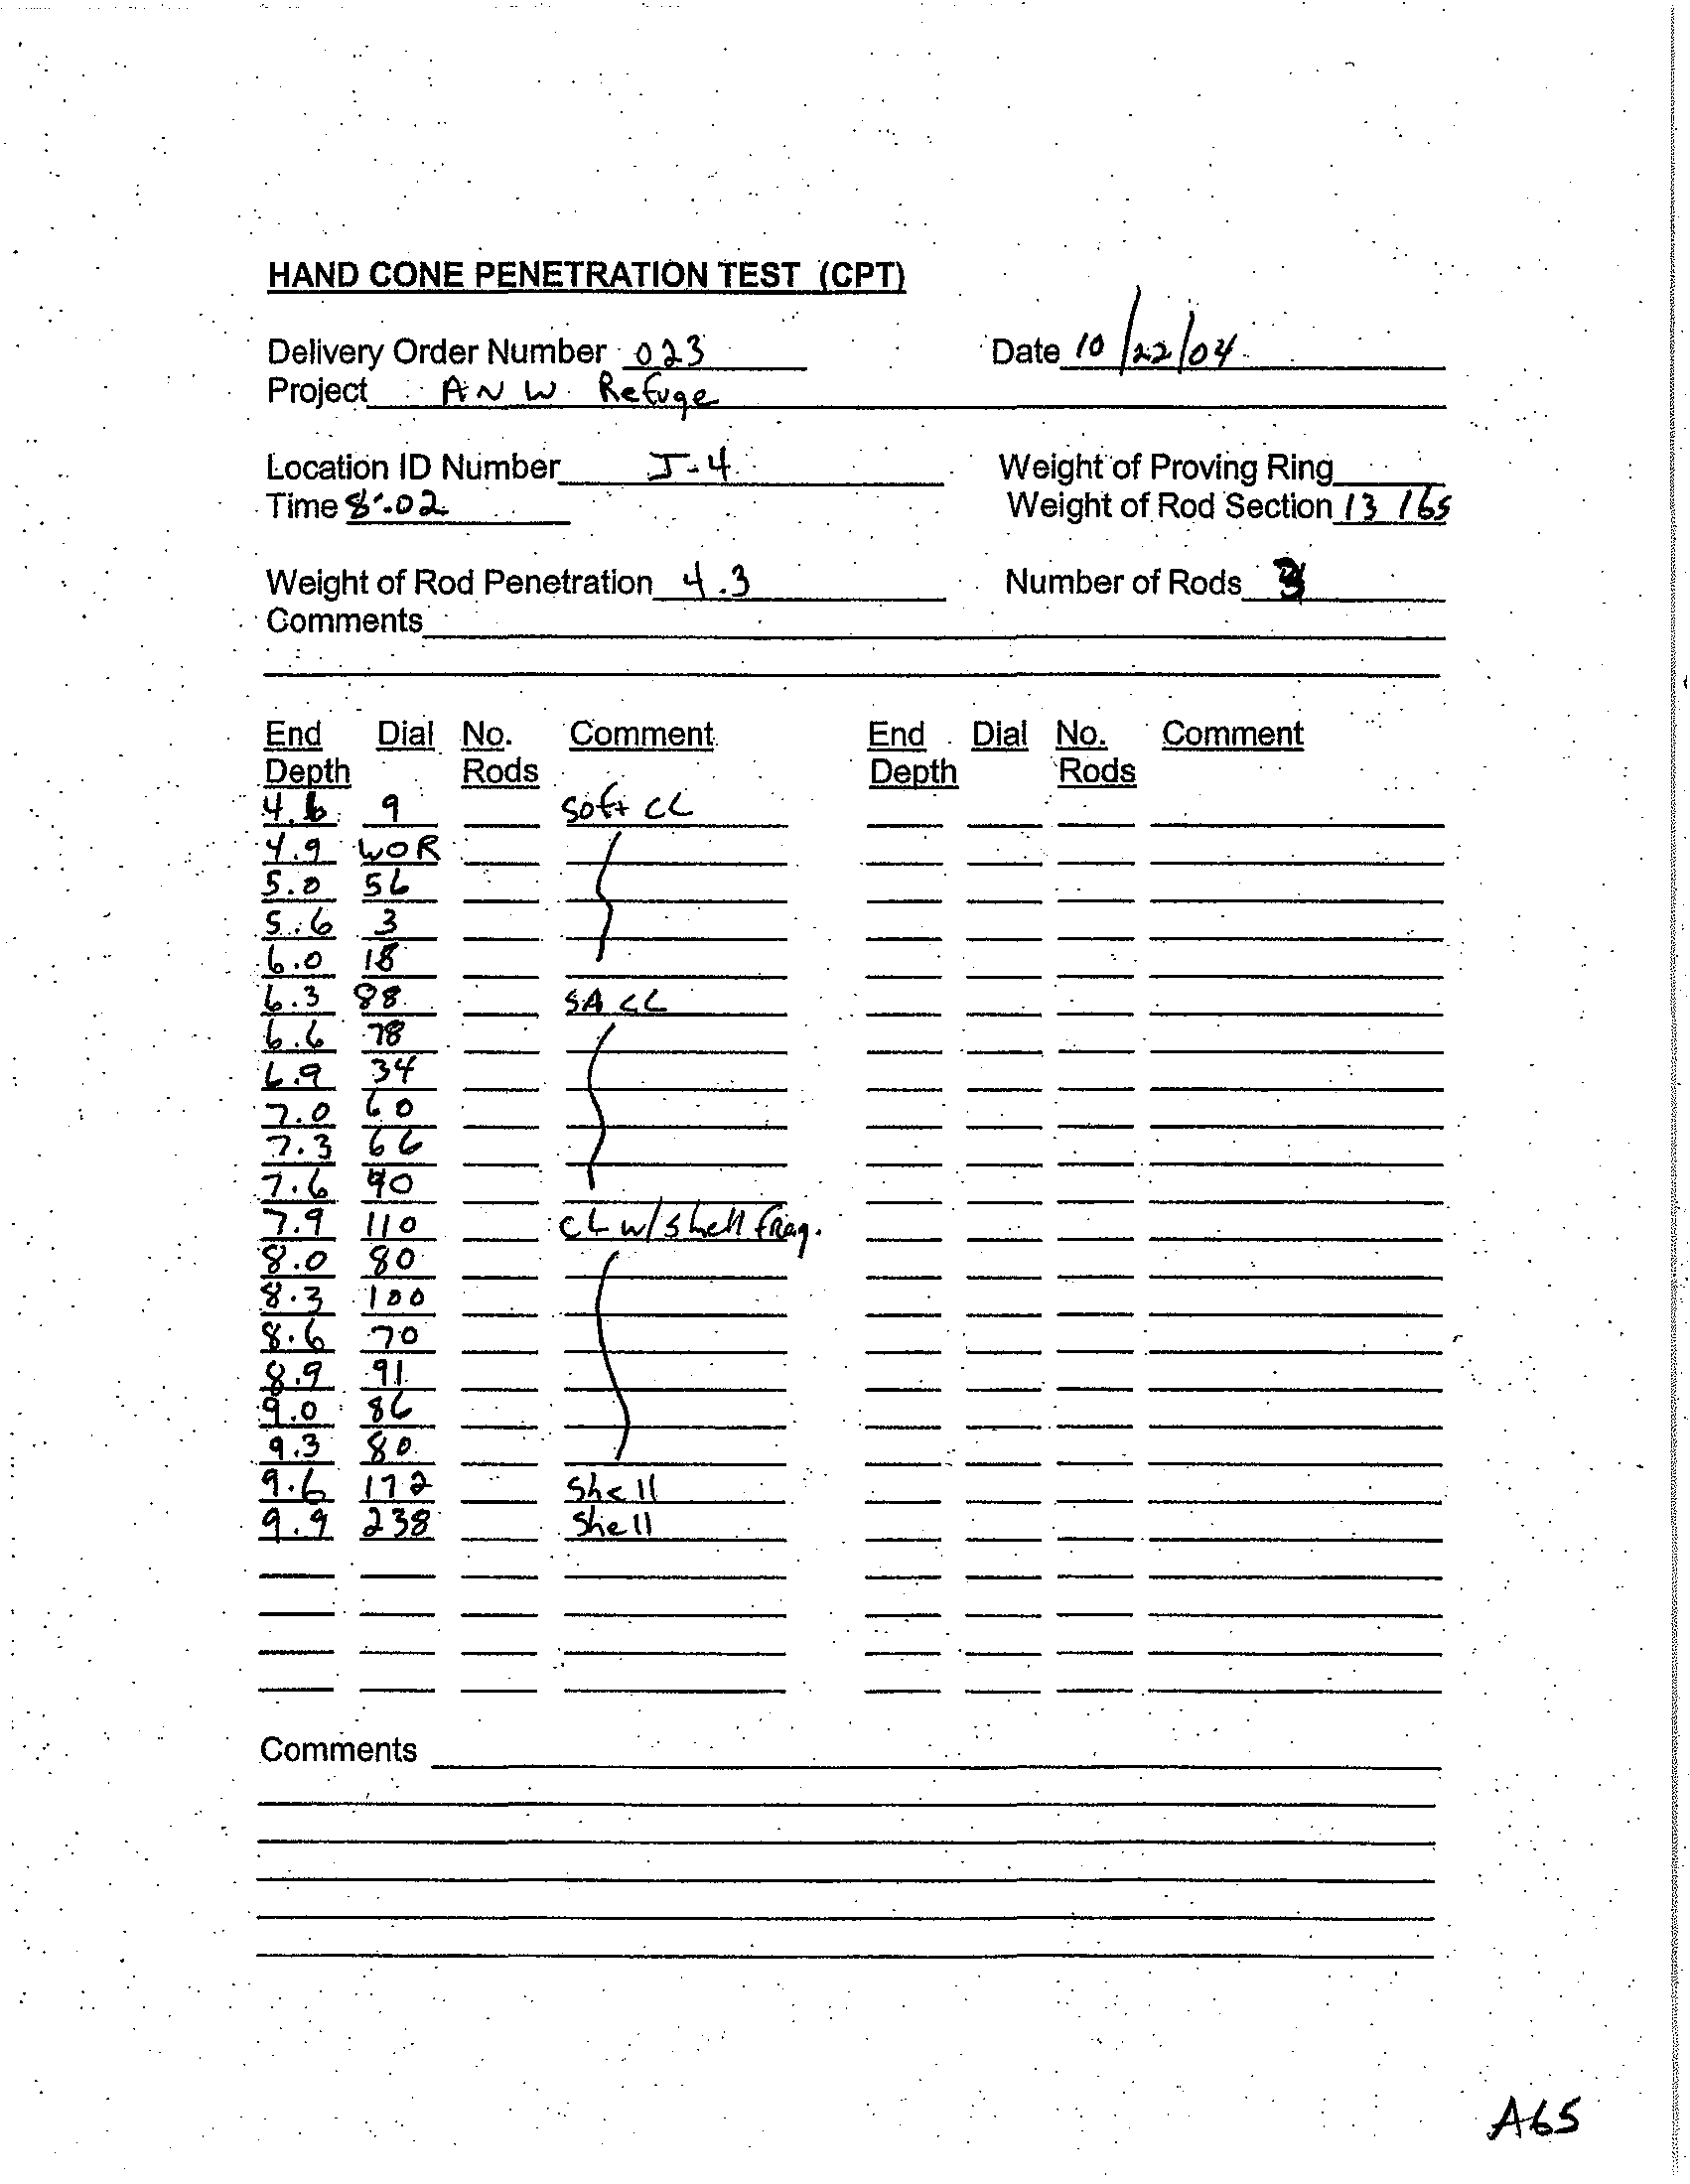 HAND CONE PENETRATION TEST (CPT)
Delivery Order Number 023 Date 10/22/04
Project ANW Refuge
Location ID Number J-4 Weight of Proving Ring
Time 8:02 Weight of Rod Section 13 lbs
Weight of Rod Penetration 4.3 Number of Rods
Comments
End Dial No. Comment End Dial No. Comment
Depth Rods Depth Rods
4.6 9 Soft CL
4.9 WOR
5.0 56
5.6 3
6.0 18
6.3 88 SA CL
6.6 78
6.9 34
7.0 60
7.3 66
7.6 90
7.9 110 CL w/ shell frag.
8.0 80
8.3 100
8.6 70
8.9 91
9.0 86
9.3 80
9.6 172 Shell
9.9 238 Shell
Comments
A65